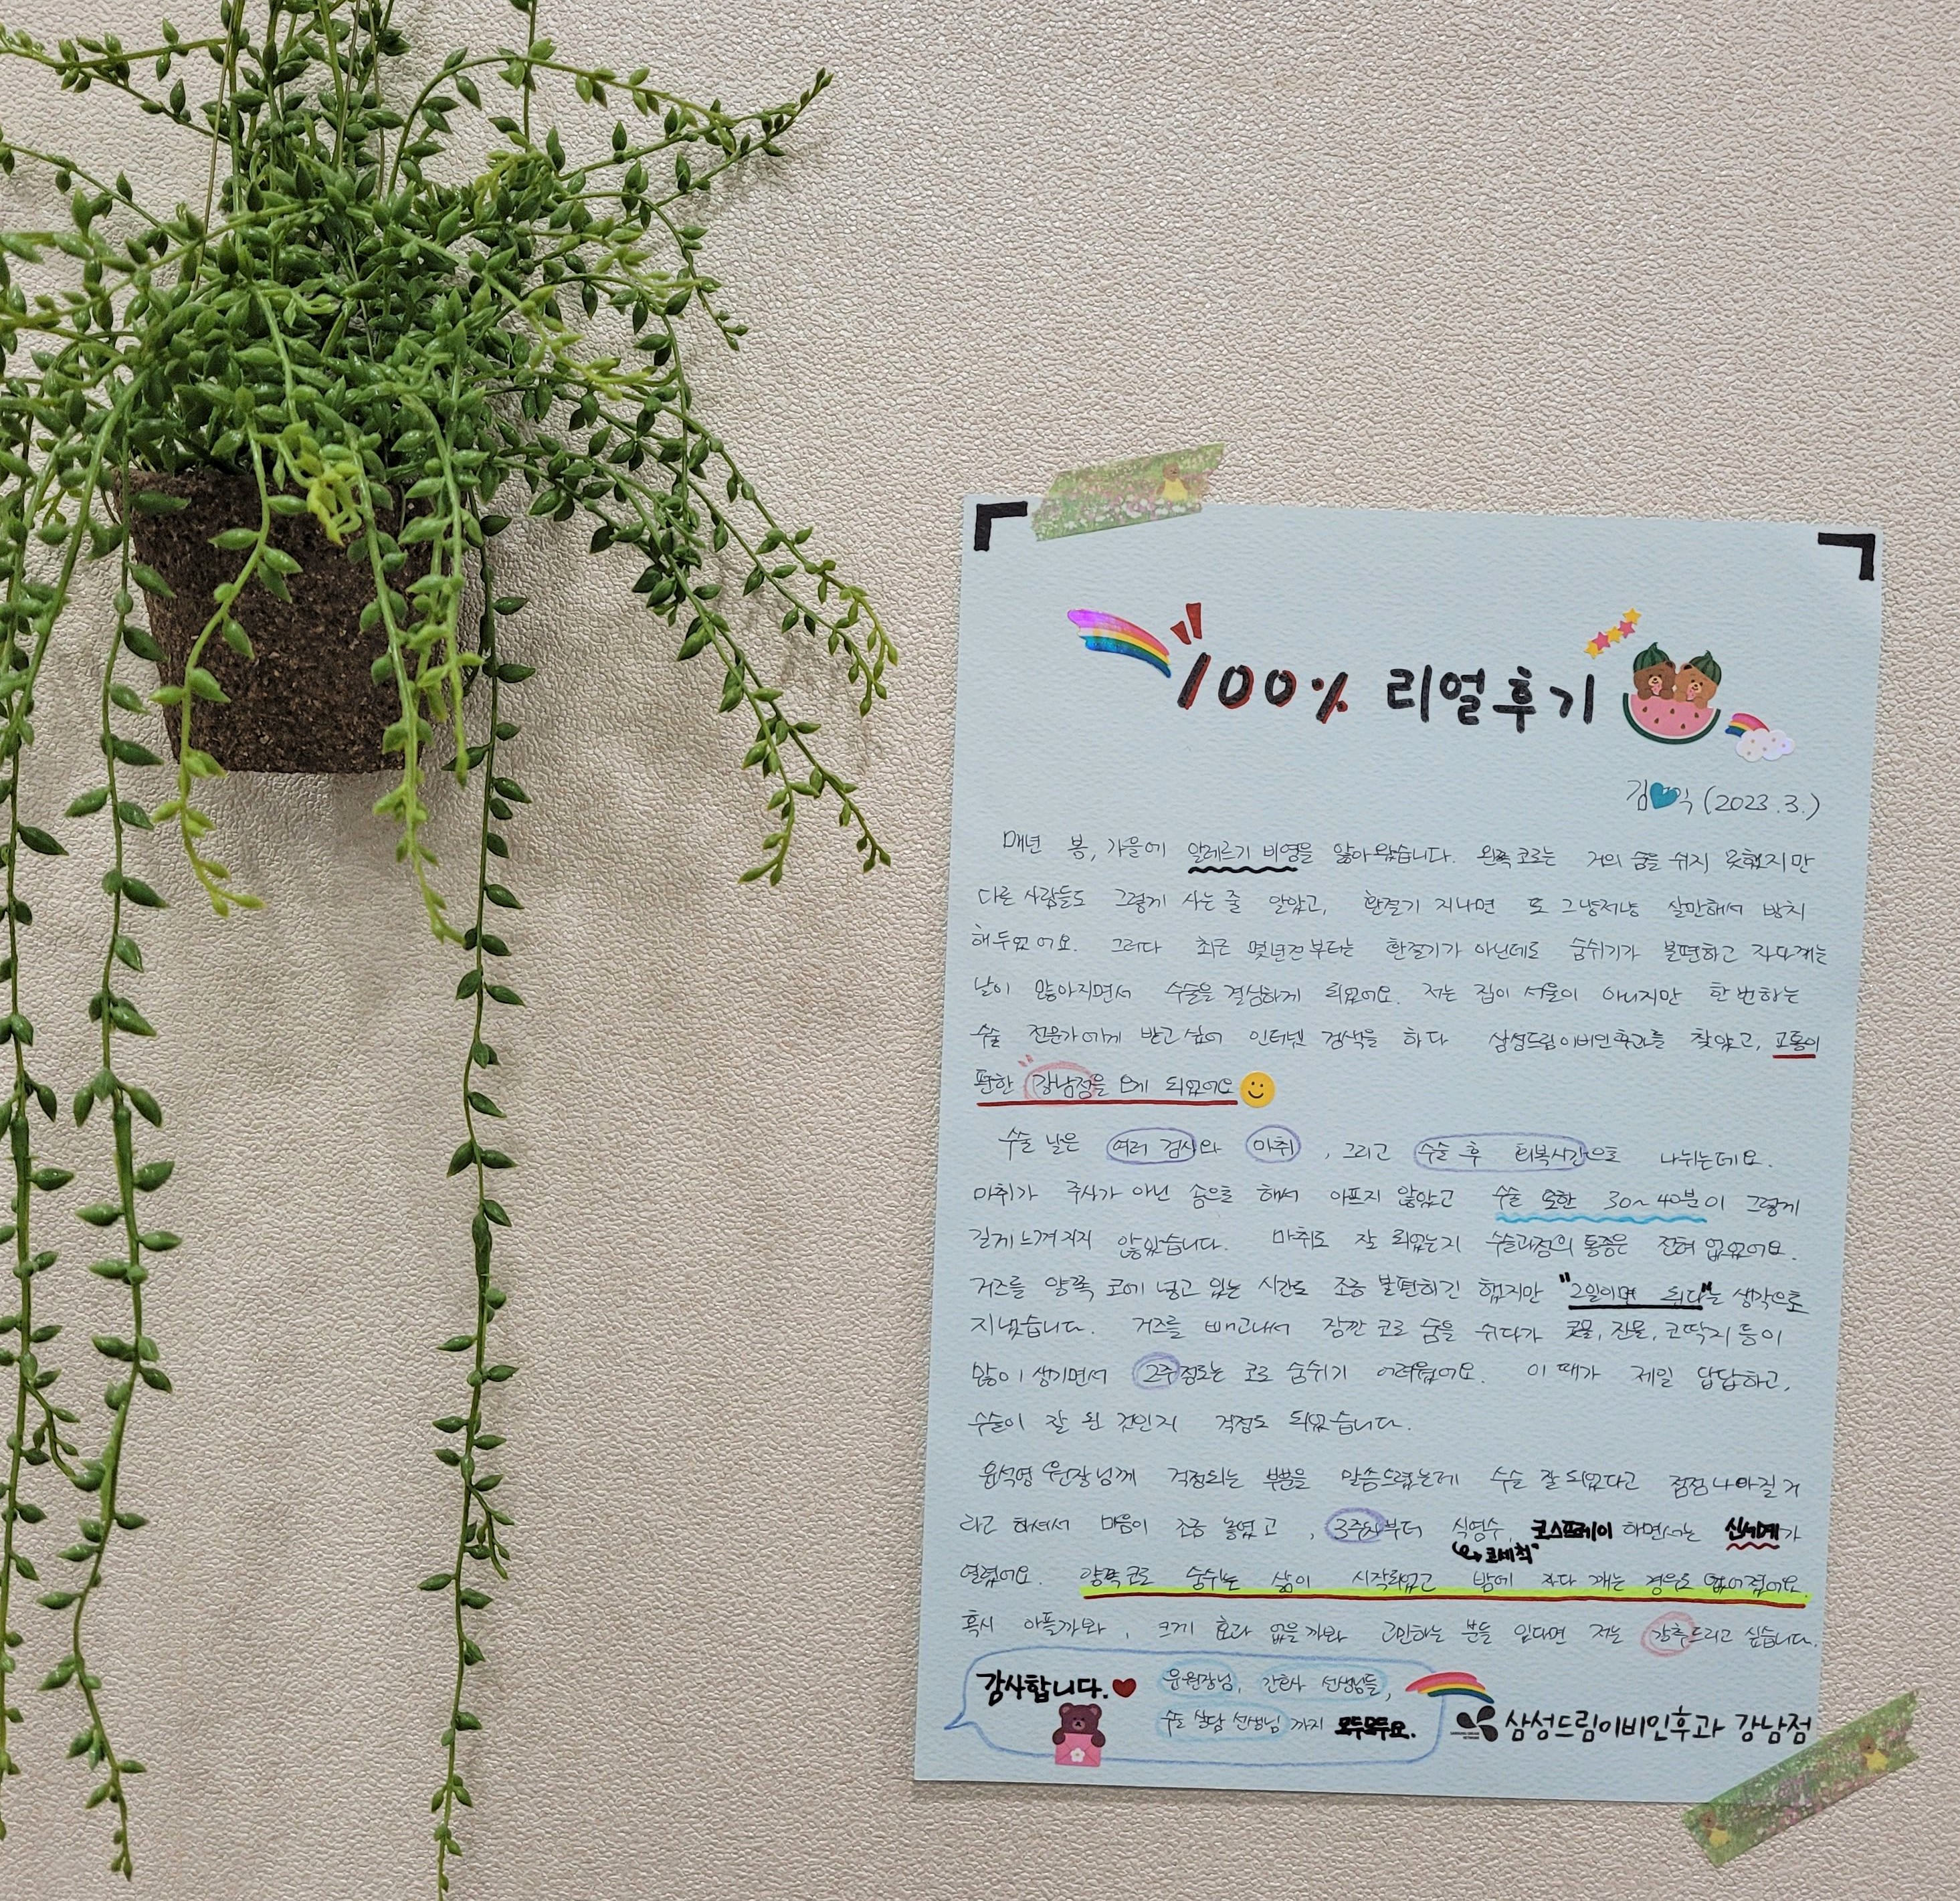 100% 리얼후기
김 익 (2023.3.)
매년 봄, 가을에 알레르기 비염을 앓아왔습니다. 왼쪽 코로는 거의 숨을 쉬지 못했지만
다른 사람들도 그렇게 사는 줄 알았고, 환절기 지나면 또 그냥저냥 살만해서 방치
해두었어요. 그러다 최근 몇년전부터는 환절기가 아닌데도 숨쉬기가 불편하고 자다깨는
날이 많아지면서 수술을 결심하게 되었어요. 저는 집이 서울이 아니지만 한번하는
수술 전문가에게 받고싶어 인터넷 검색을 하다 삼성드림이비인후과를 찾았고, 교통이
편한 강남점을 오게 되었어요
수술 날은 여러 검사와 마취, 그리고 수술 후 회복시간으로 나뉘는데요.
마취가 주사가 아닌 솜으로 해서 아프지 않았고 수술 또한 30~40분이 그렇게
길게 느껴지지 않았습니다. 마취도 잘 되었는지 수술과정의 통증은 전혀 없었어요.
거즈를 양쪽 코에 넣고 있는 시간도 조금 불편하긴 했지만 "2일이면 된다"는 생각으로
지냈습니다. 거즈를 빼고나서 잠깐 코로 숨을 쉬다가 콧물, 진물, 코딱지 등이
많이 생기면서 2주정도는 코로 숨쉬기 어려웠어요. 이 때가 제일 답답하고,
수술이 잘 된 것인지 걱정도 되었습니다.
윤석영 원장님께 걱정되는 부분을 말씀드렸는데 수술 잘 되었다고 점점 나아질거
라고 하셔서 마음이 조금 놓였고, 3주차부터 식염수, 코스프레이 하면서는 신세계가
↳코세척
열렸어요. 양쪽 코로 숨쉬는 삶이 시작되었고 밤에 자다 깨는 경우도 없어졌어요.
혹시 아플까봐, 크게 효과 없을까봐 고민하는 분들 있다면 저는 강추드리고 싶습니다.
감사합니다. 윤원장님, 간호사 선생님들,
수술 상담 선생님까지 모두모두요.
삼성드림이비인후과 강남점